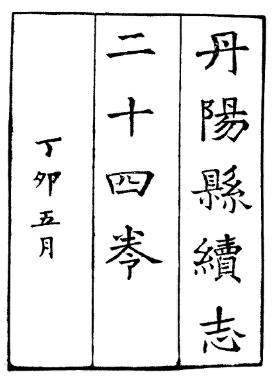 丹陽縣續志
二十四卷
丁卯五月